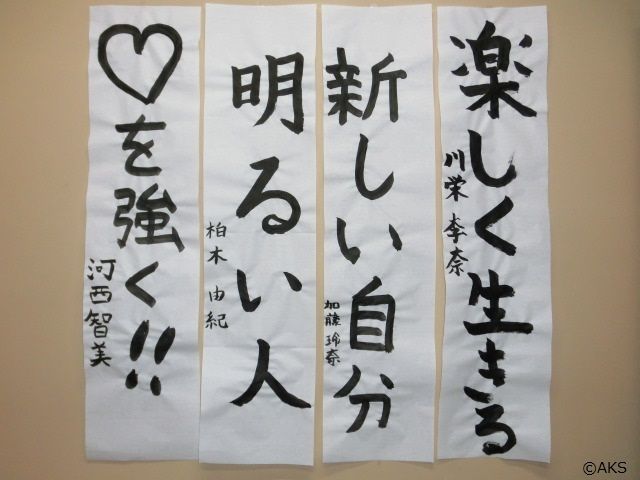 楽しく生きる
川栄李奈
新しい自分
加藤玲奈
明るい人
柏木由紀
♡を強く!!
河西智美
©AKS